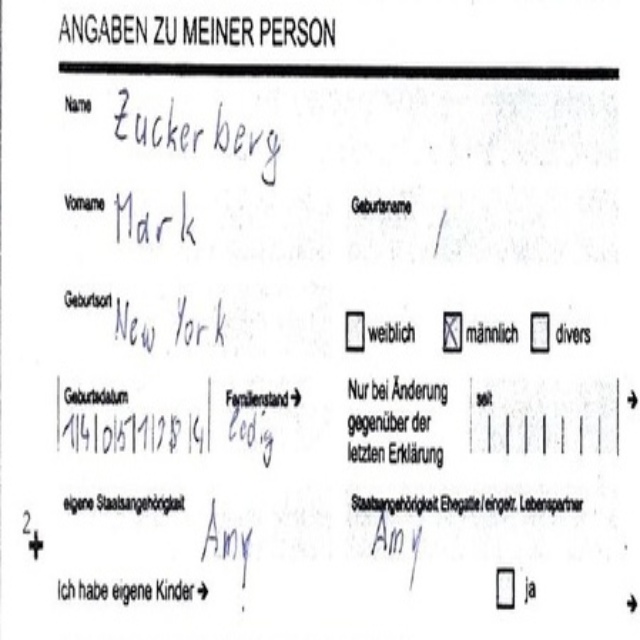 ANGABEN ZU MEINER PERSON
Name Zuckerberg
Vorname Mark Geburtsname /
Geburtsort New York weiblich männlich divers
Geburtsdatum Familienstand → ledig Nur bei Änderung gegenüber der letzten Erklärung seit →
eigene Staatsangehörigkeit Amy Staatsangehörigkeit Ehegatte/eingetr. Lebenspartner Amy
2
Ich habe eigene Kinder → ja →